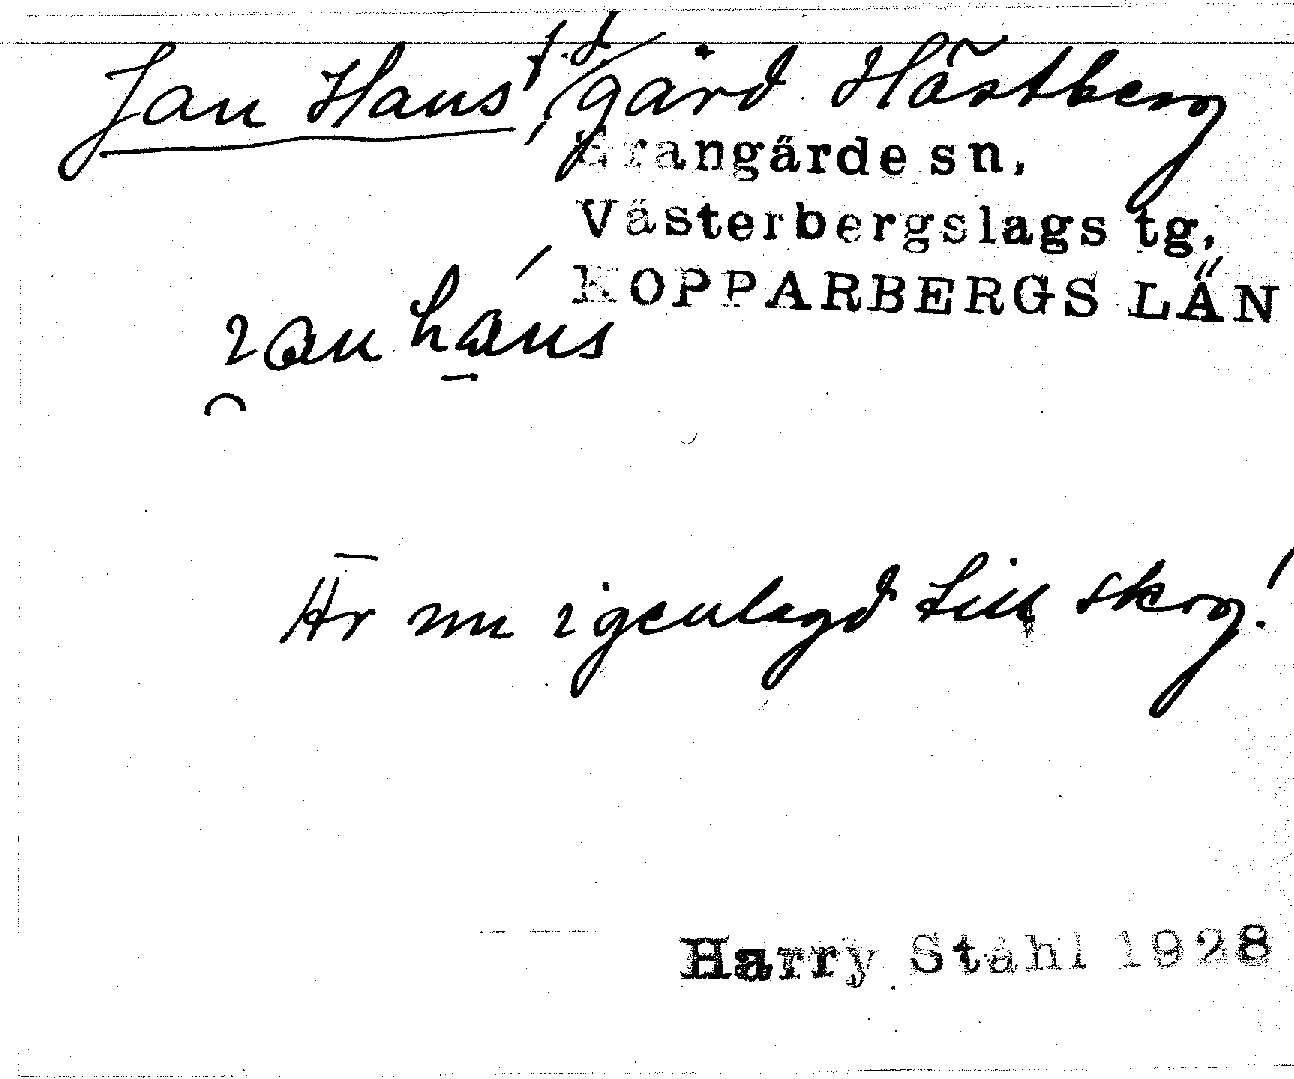 Jan Hans, f.d. gård Hästberg
Grangärde sn.
Västerbergslags tg.
KOPPARBERGS LÄN
ɿan háns
Är nu igenlagd till skog!
Harry Ståhl 1928